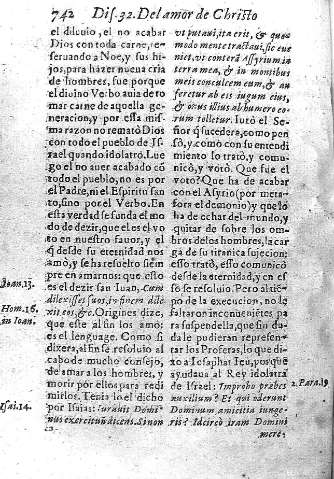 742 Dis. 32. Del amor de Christo
el diluuio, el no acabar
Dios con toda carne, re-
seruando a Noe, y sus hi-
jos, para hazer nueua cria
de hombres, fue porque
el diuino Verbo auia de to
mar carne de aquella ge-
neracion, y por esta mis-
ma razon no remató Dios
con todo el pueblo de Is-
rael quando idolatró. Lue
go el no auer acabado cõ
todo el pueblo, no es por
el Padre, ni el Espiritu san
to, sino por el Verbo. En
esta verdad se funda el mo
do de dezir, que el es el vo
to en nuestro fauor, y el
q̃ desde su eternidad nos
amó, y se ha resuelto siem
pre en amarnos: que esso
es el dezir san Iuan, Cum
dilexisset suos, in finem dile
xit eos, &c. Origines dize,
que este al fin los amó:
es el lenguage. Como si
dixera, al fin se resoluio al
cabo de mucho consejo,
de amar a los hombres, y
morir por ellos para redi
mirlos. Tenia lo el dicho
por Isaias: Iurauit Domi-
nus exercituũ dicens. Si non
Ioan. 13.
Hom. 16.
in Ioan.
Isai. 14.
vt putaui, ita erit, & quo-
modo mente tractaui, sic eue
niet, vt conterã Assyrium in
terra mea, & in montibus
meis conculcem eum, & au-
feretur ab eis iugum eius,
& onus illius ab humero eo-
rum tolletur. Iuró el Se-
ñor q̃ sucedera, como pen
só, y como con su entendi
miento lo trató, y comu-
nicó, y votó. Que fue el
voto? Que ha de acabar
con el Asyrio (por meta-
fora el demonio) y que lo
ha de echar del mundo, y
quitar de sobre los om-
bros de los hombres, la car
ga de su titanica sujecion:
esso trató, esso comunicò
desde la eternidad, y en es
so se resoluio. Pero al tiẽ-
po de la execucion, no le
faltaron inconueniẽtes pa
ra suspendella, que sin du-
da le pudieran represen-
tar los Profetas, lo que di-
xo a Iosaphat Ieu, porque
ayudaua al Rey idolatra
de Israel: Impio præbes
auxilium? Et qui oderunt
Dominum amicitia iunge-
ris? Idcirco iram Domini
mere-
2. Para. 19